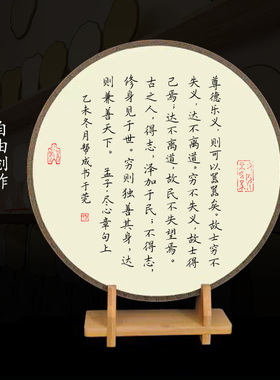 尊德乐义，则可以嚣嚣矣。故士穷不
失义，达不离道。穷不失义，故士得
己焉；达不离道，故民不失望焉。
古之人，得志，泽加于民；不得志，
修身见于世。穷则独善其身，达
则兼善天下。 孟子·尽心章句上
乙未冬月帮成书于莞
自由创作